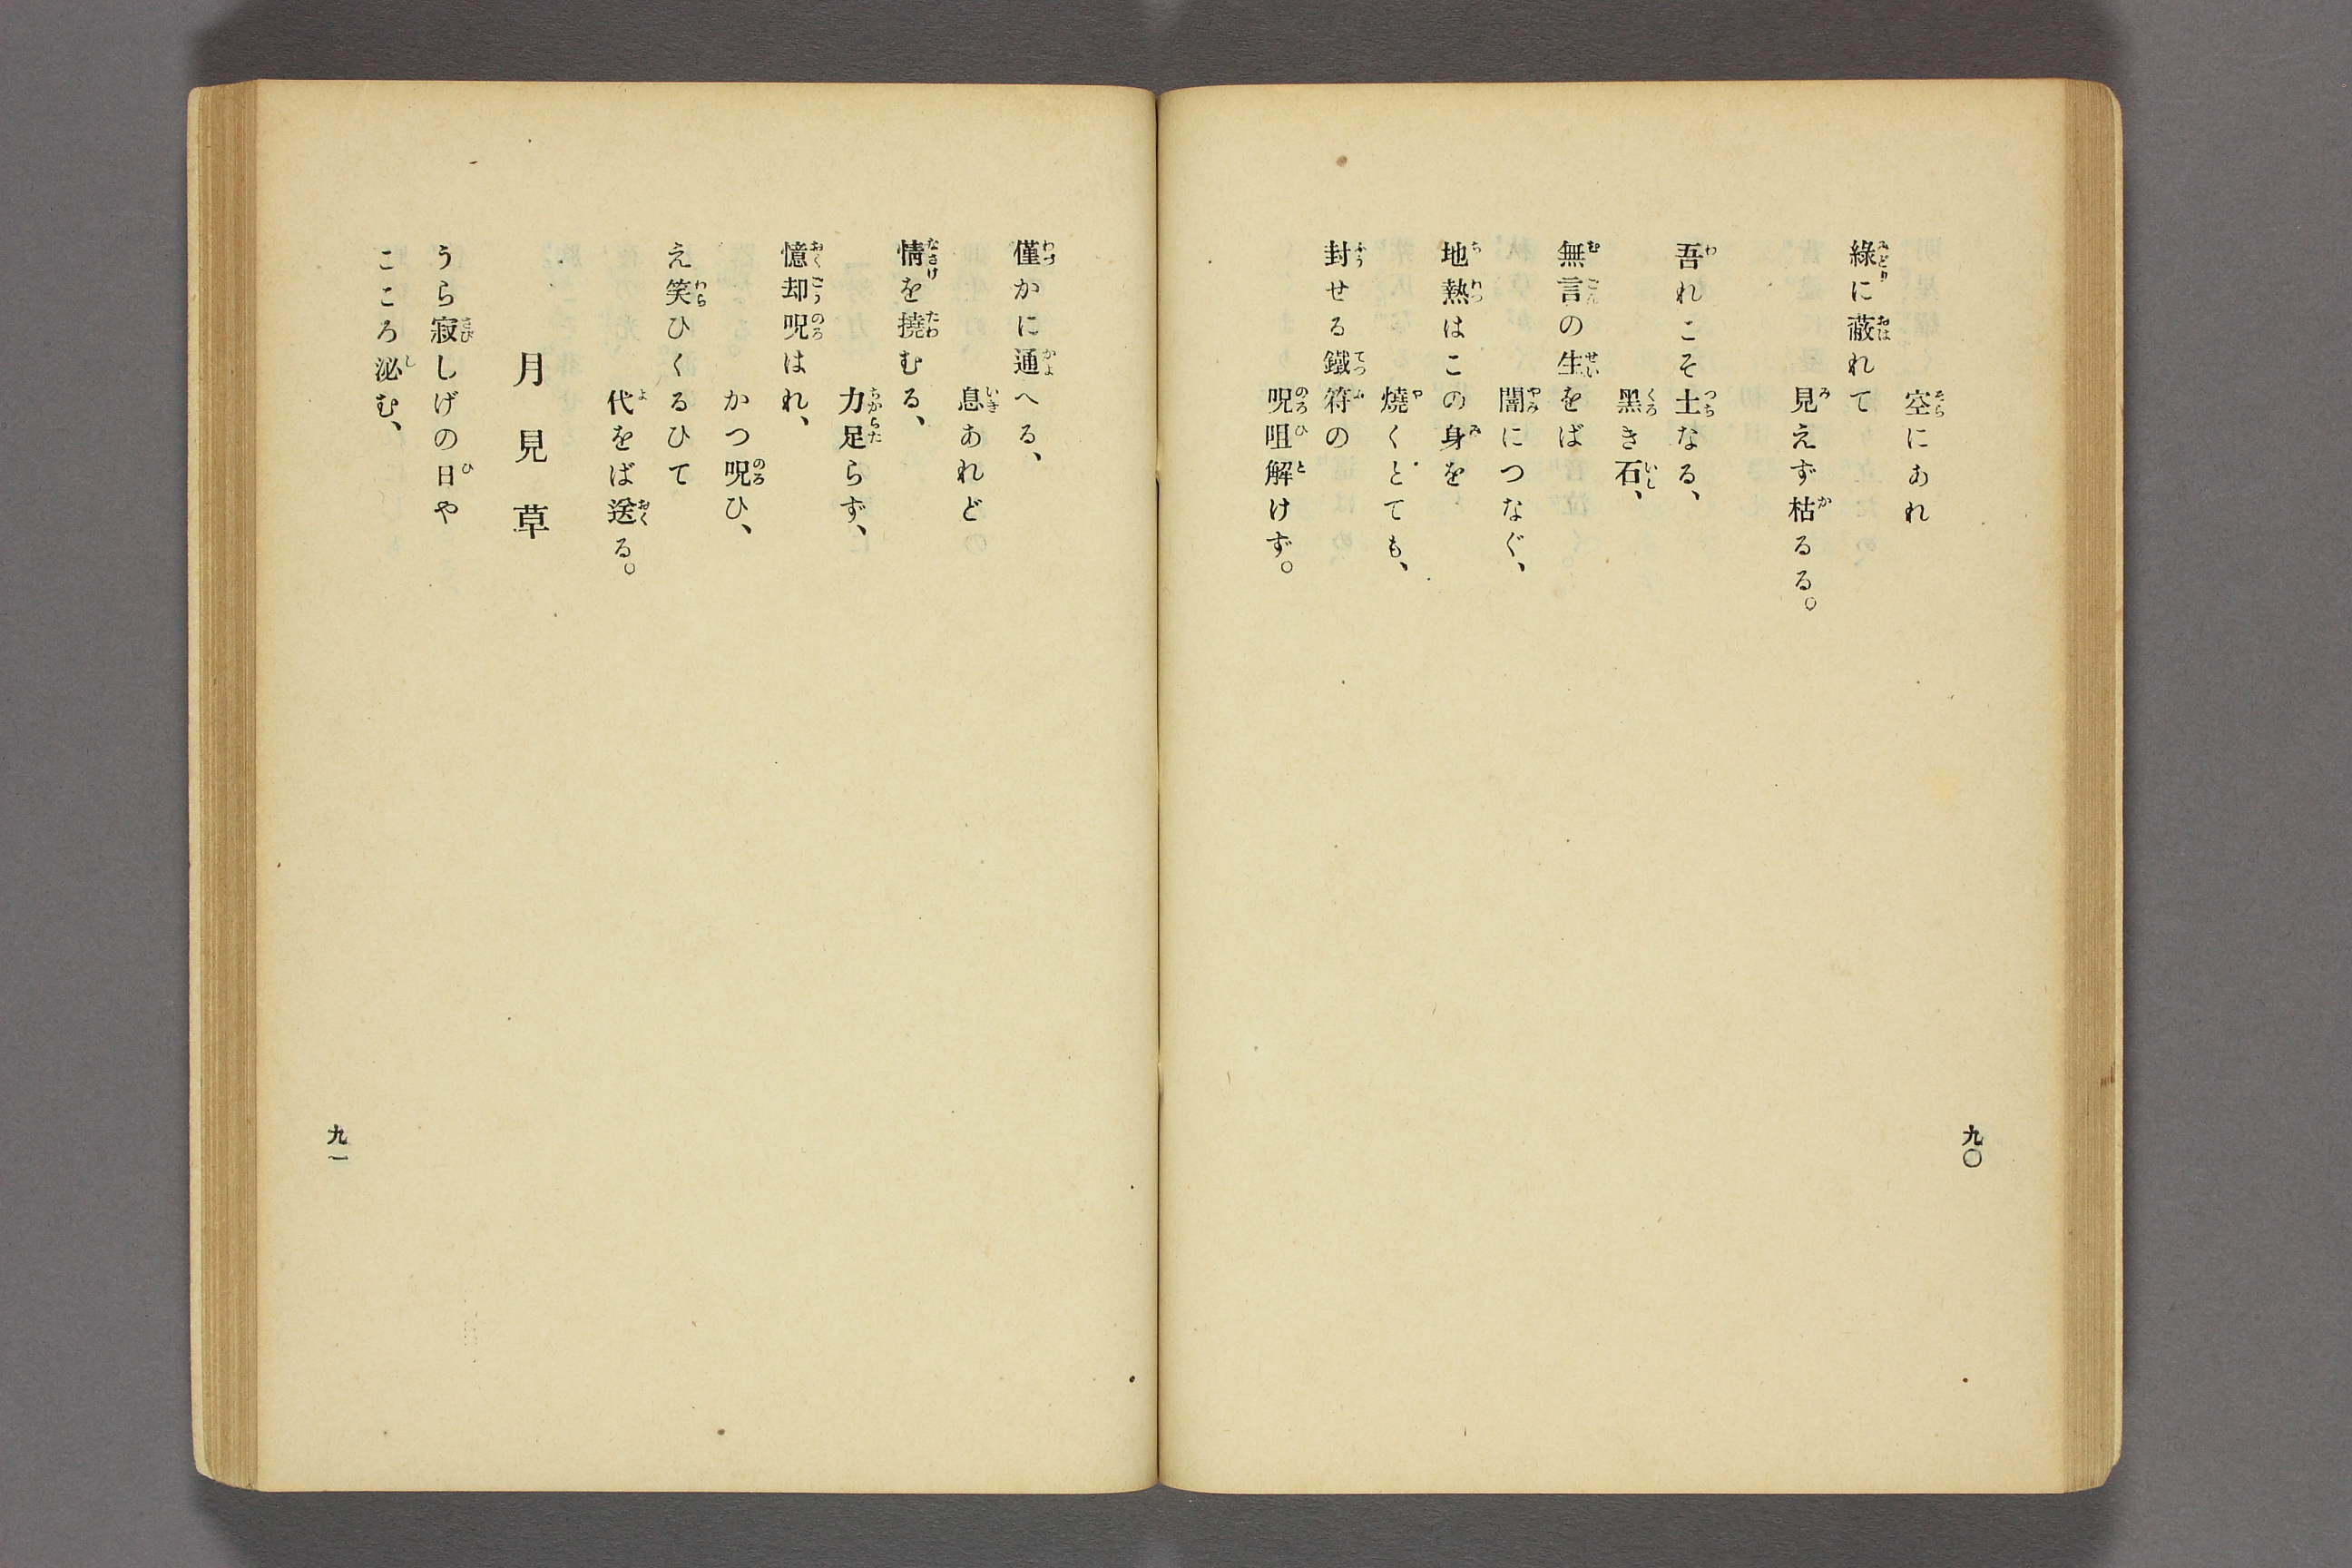 空にあれ
綠に蔽れて
見えず枯るる。
吾れこそ土なる、
黑き石、
無言の生をば
闇につなぐ、
地熱はこの身を
燒くとても、
封せる鐵符の
呪咀解けず。
九〇
僅かに通へる、
息あれど
情を撓むる、
力足らず、
憶却呪はれ、
かつ呪ひ、
え笑ひくるひて
代をば送る。
月見草
うら寂しげの日や
こころ泌む、
九一